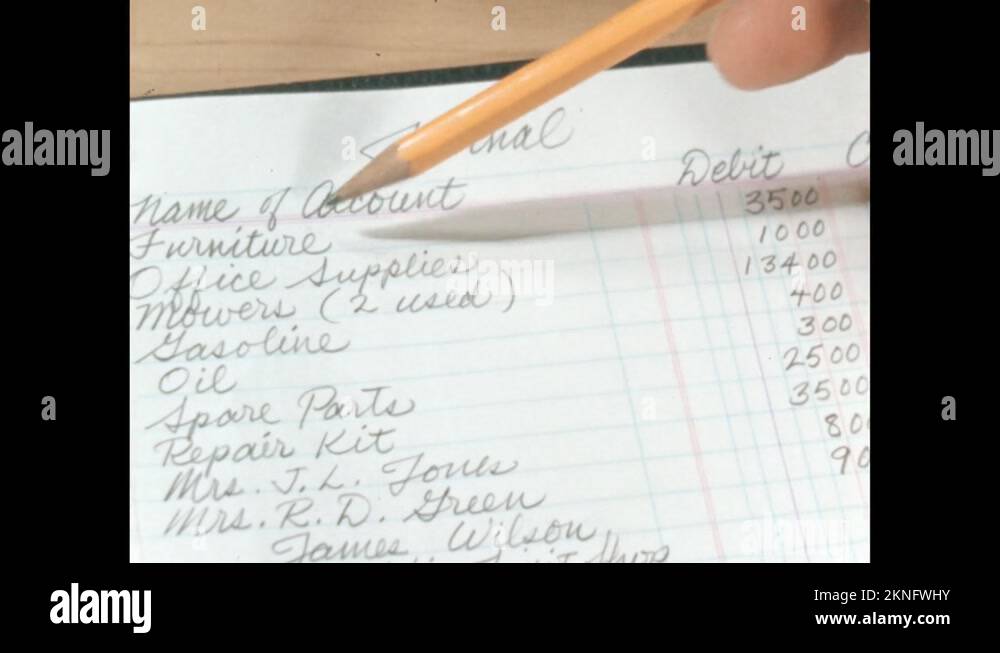 Journal
Name of Account Debit C
Furniture 3500
Office Supplies 1000
Mowers (2 used) 13400
Gasoline 400
Oil 300
Spare Parts 2500
Repair Kit 3500
Mrs. J. L. Jones 80
Mrs. R. D. Green 90
James Wilson
Shop
alamy
alamy
Image ID: 2KNFWHY
www.alamy.com